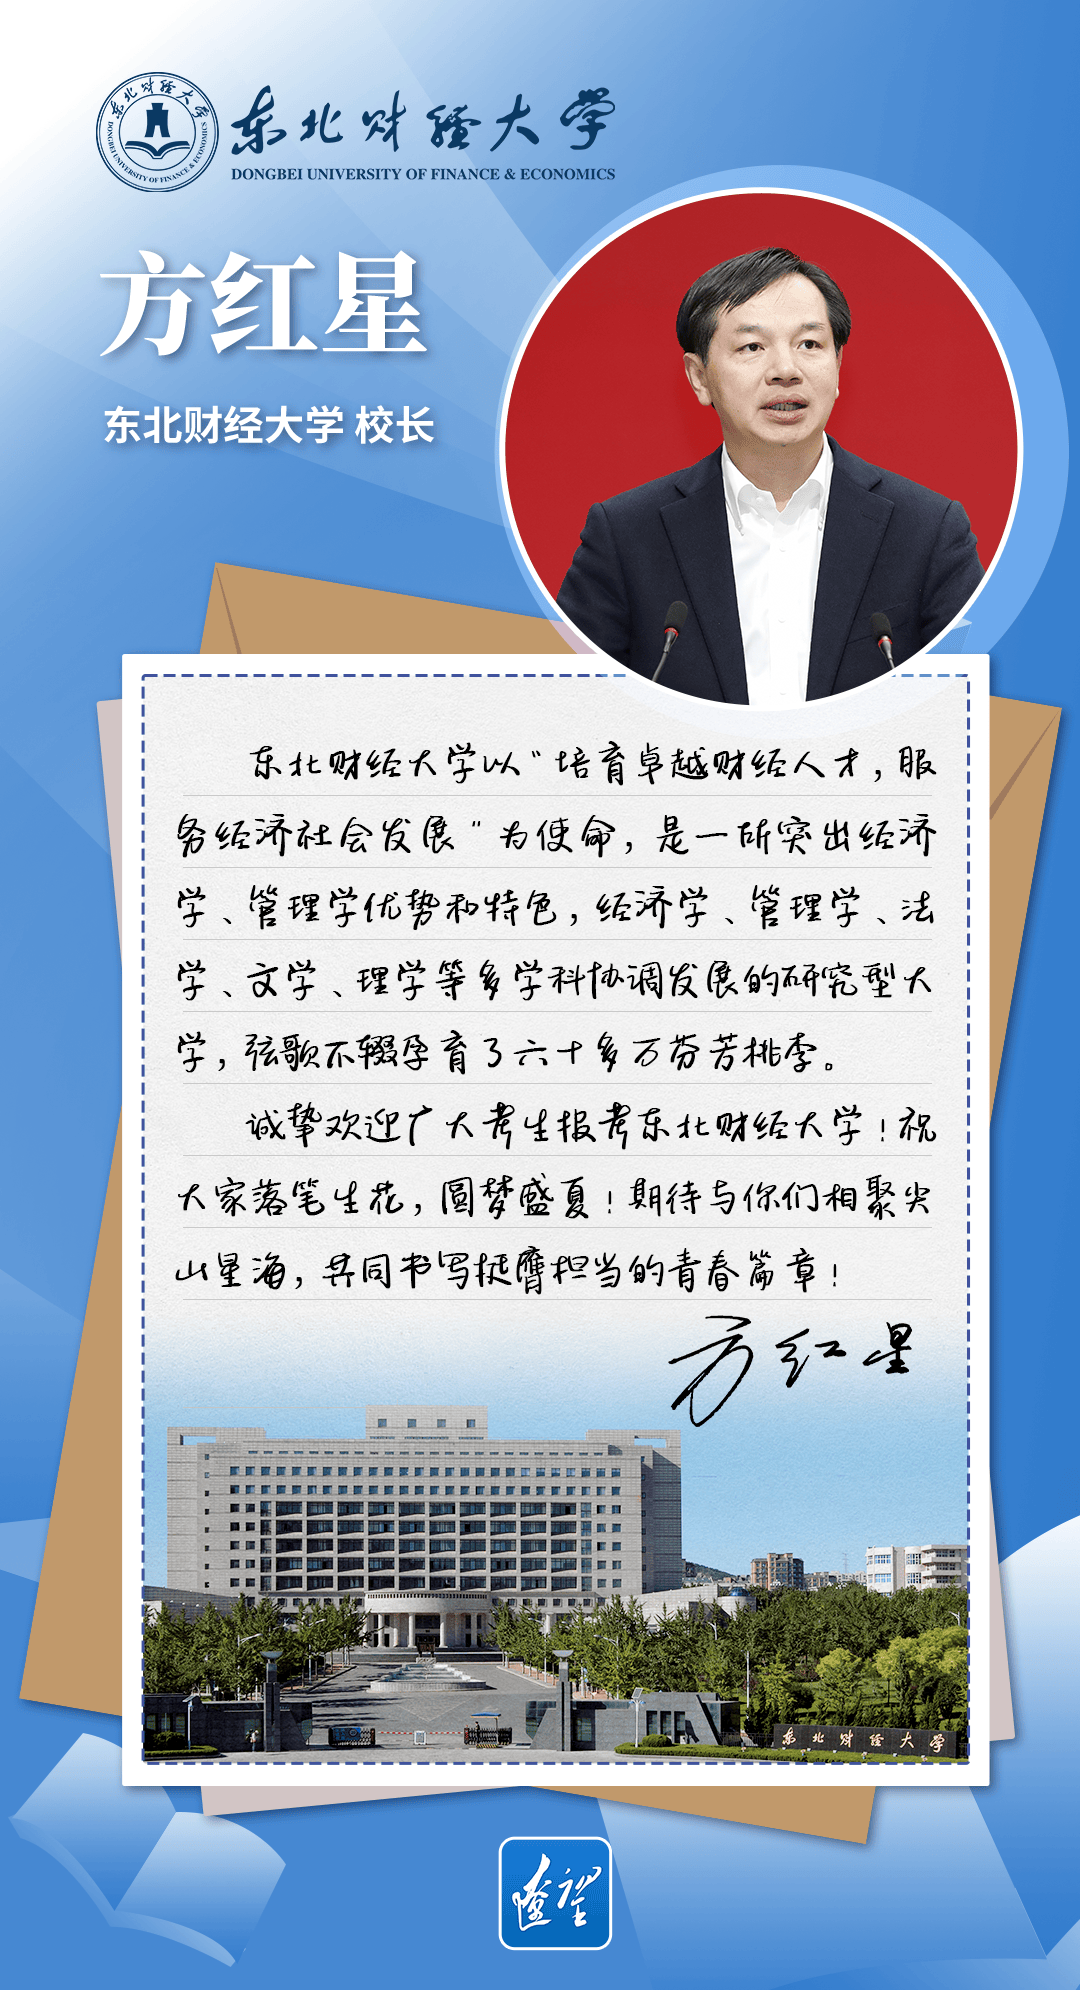 东北财经大学
DONGBEI UNIVERSITY OF FINANCE & ECONOMICS
东北财经大学
DONGBEI UNIVERSITY OF FINANCE & ECONOMICS
方红星
东北财经大学 校长
东北财经大学以“培育卓越财经人才，服
务经济社会发展”为使命，是一所突出经济
学、管理学优势和特色，经济学、管理学、法
学、文学、理学等多学科协调发展的研究型大
学，弦歌不辍孕育了六十多万芬芳桃李。
诚挚欢迎广大考生报考东北财经大学！祝
大家落笔生花，圆梦盛夏！期待与你们相聚尖
山星海，共同书写挺膺担当的青春篇章！
方红星
东北财经大学
瞭望